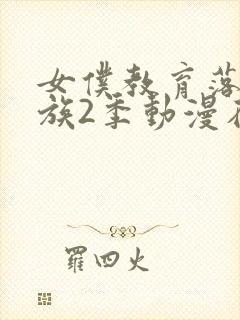 女僕教育落
族2季動漫在
羅四火